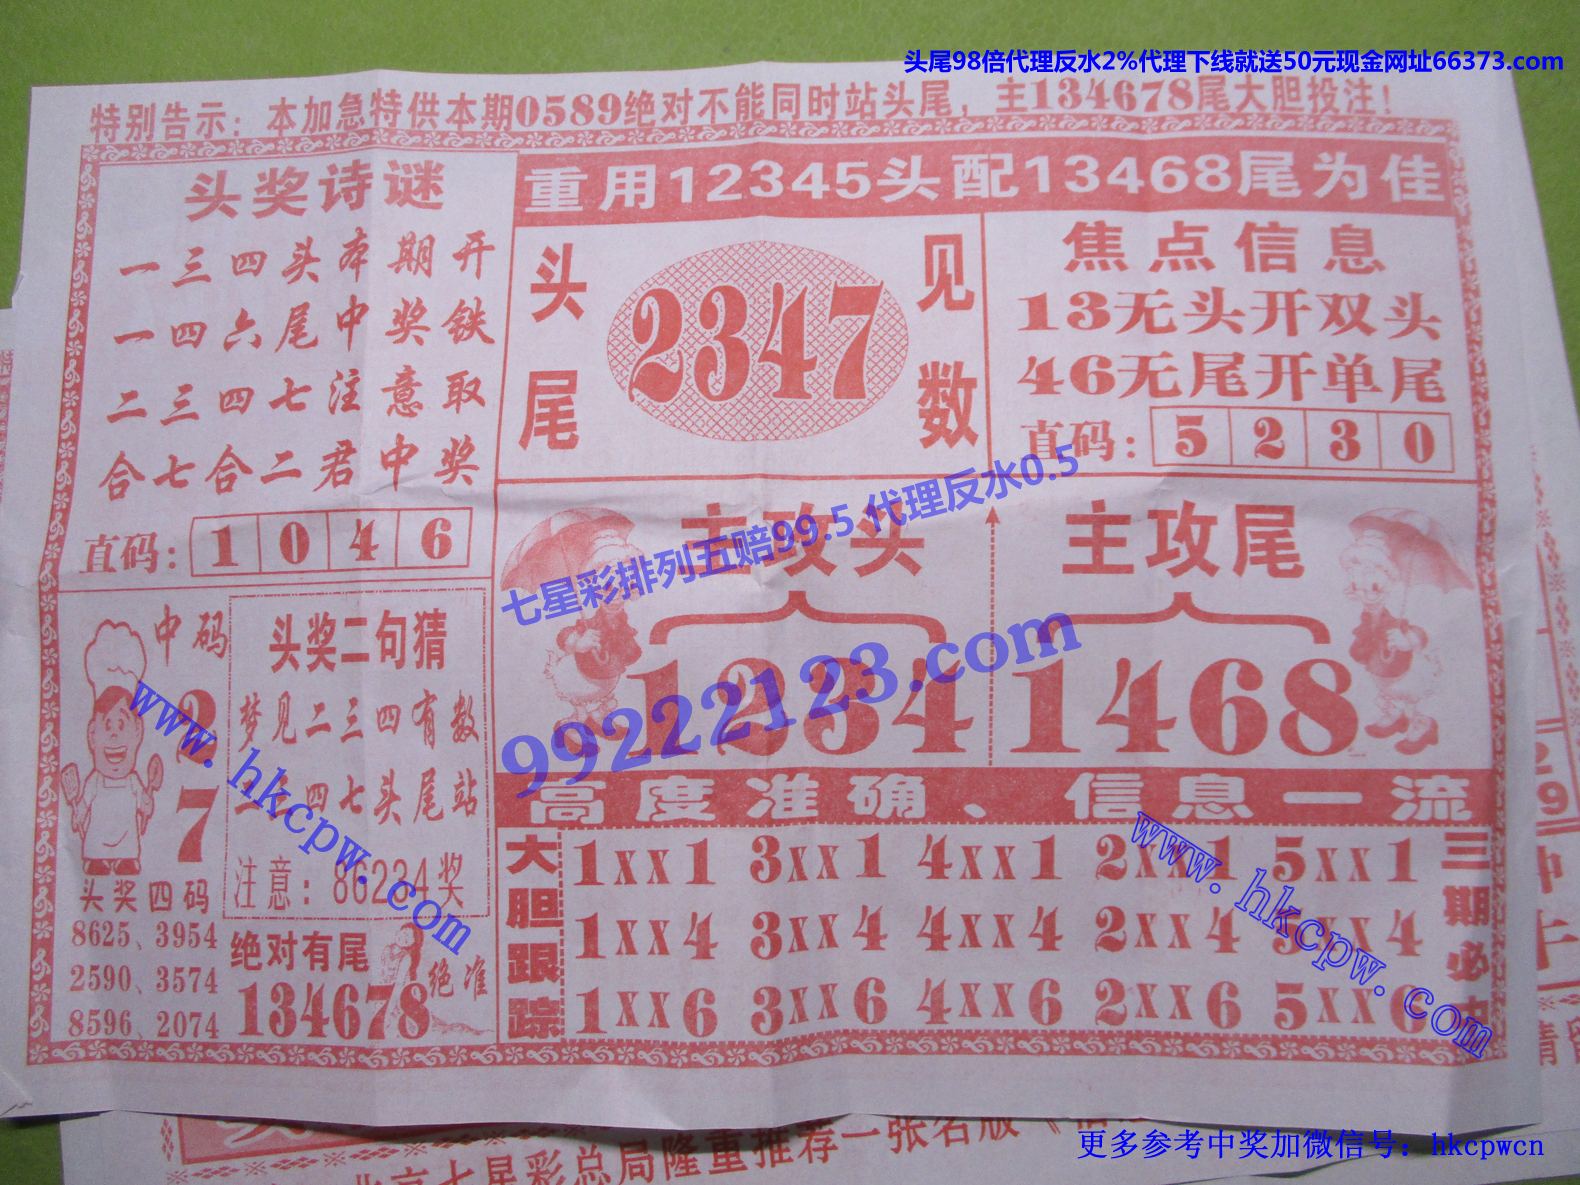 头尾98倍代理反水2%代理下线就送50元现金网址66373.com
特别告示：本加急特供本期0589绝对不能同时站头尾，主134678尾大胆投注！
头奖诗谜
一三四头本期开
一四六尾中奖铁
二三四七注意取
合七合二君中奖
直码：1046
重用12345头配13468尾为佳
头尾
2347
见数
焦点信息
13无头开双头
46无尾开单尾
直码：5230
七星彩排列五赔99.5 代理反水0.5
99222123.com
主攻头
1234
主攻尾
1468
中码
2
7
头奖四码
8625、3954
2590、3574
8596、2074
头奖二句猜
梦见二三四有数
四七头尾站
注意：86234奖
绝对有尾
134678
绝准
www.hkcpw.com
高度准确、信息一流
大胆跟踪
1XX1 3XX1 4XX1 2XX1 5XX1
1XX4 3XX4 4XX4 2XX4 5XX4
1XX6 3XX6 4XX6 2XX6 5XX6
三期必
www.hkcpw.com
29
北京七星彩总局隆重推荐一张名版
更多参考中奖加微信号：hkcpwcn